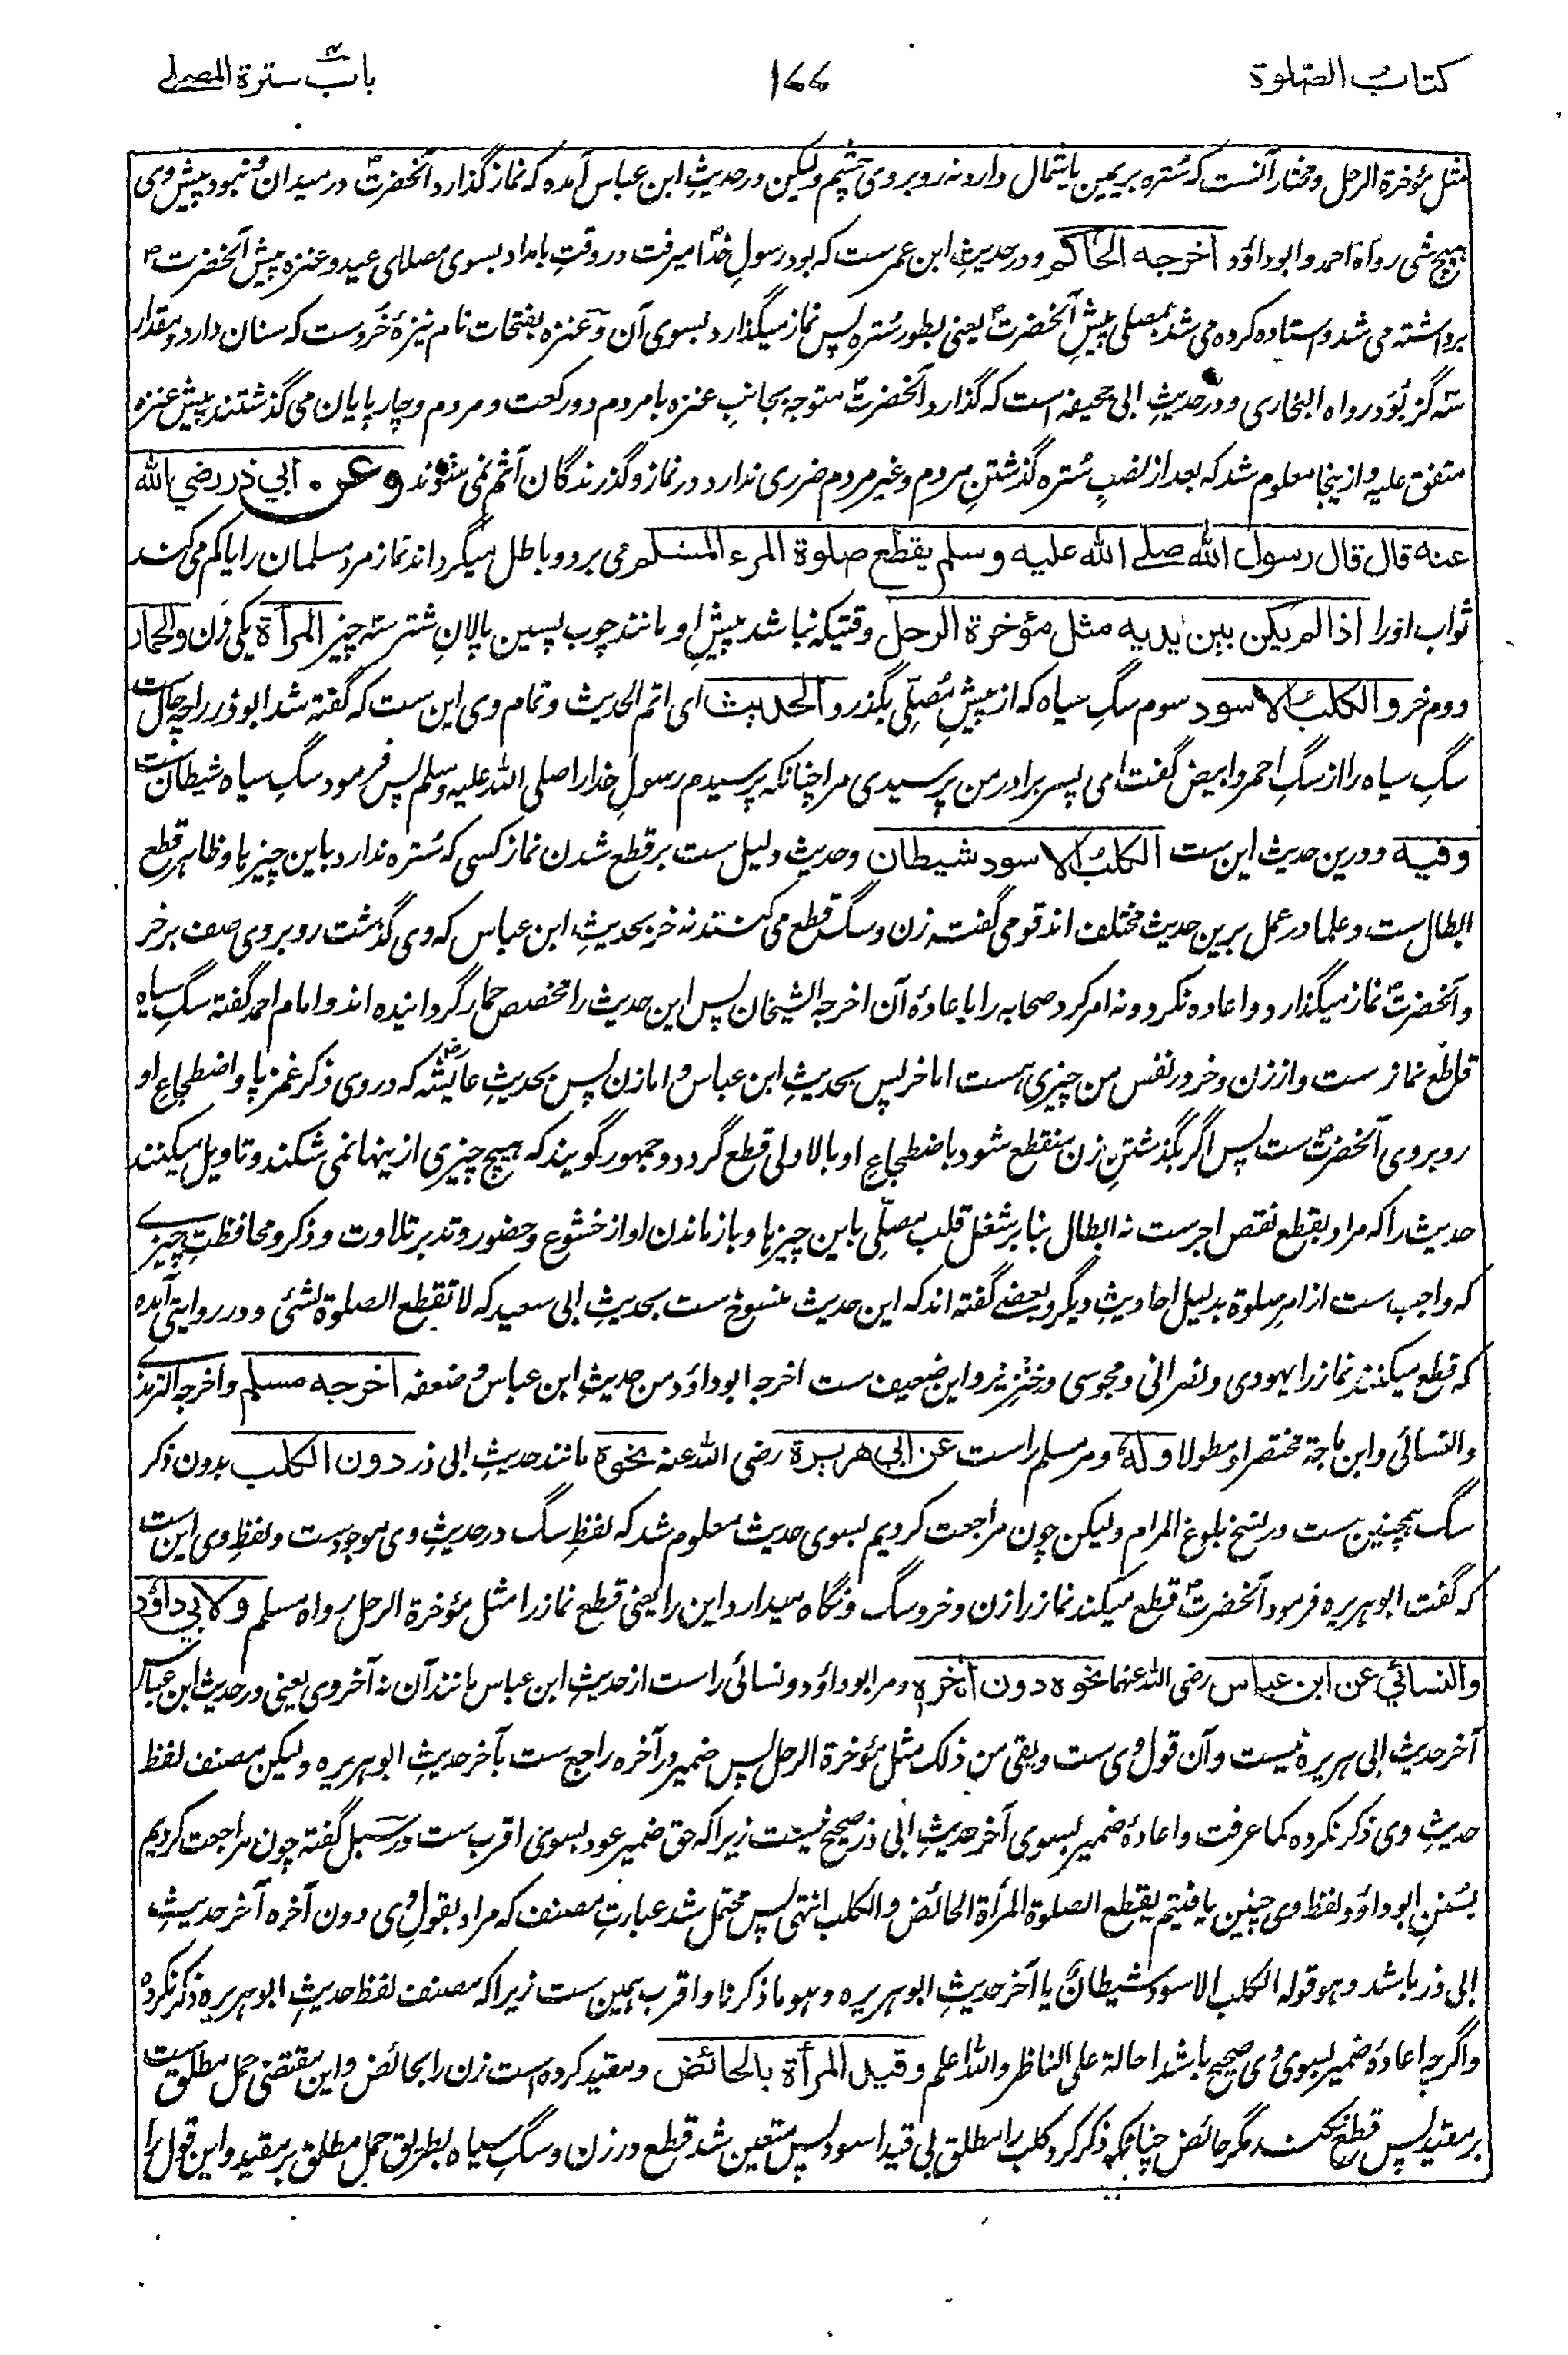 كتاب الصلوة
۱۶۶
باب سترة المصلے
مثل مؤخرة الرحل ومختار آنست که ستره بر یمین یا شمال دارد نه روبروی چشم ولیکن در حدیثِ ابن عباس آمده که نماز گذارد آنحضرتؐ در میدان و نبود پیش وی
هیچ شی رواه احمد وابوداؤد اخرجه الحاكم ودر حدیثِ ابن عمرست که بود رسولِ خداؐ میرفت در وقتِ بامداد بسوی مصلای عید وعنزه پیش آنحضرتؐ
برداشته می شد واستاده کرده می شد بمصلی پیشِ آنحضرتؐ یعنی بطور ستره پس نماز میگذارد بسوی آن وعنزه بفتحات نام نیزهٔ خردست که سنان دارد ومقدار
سه گز بود رواه البخاری ودر حدیثِ ابی جحیفه است که گذارد آنحضرتؐ متوجه بجانبِ عنزه با مردم دو رکعت ومردم وچارپایان می گذشتند پیش عنزه
متفق علیه وازینجا معلوم شد که بعد از نصبِ ستره گذشتنِ مردم وغیر مردم ضرری ندارد در نماز وگذرندگان آثم نمی شوند وعن ابي ذر رضي الله
عنه قال قال رسول الله صلے الله عليه وسلم يقطع صلوة المرء المسلم می برد وباطل میگرداند نماز مرد مسلمان را یا کم می کند
ثواب اورا اذا لم يكن بين يديه مثل مؤخرة الرحل وقتیکه نباشد پیشِ او مانند چوب پسین پالانِ شتر سه چیز المرأة یکی زن والحمار
دوم خر والكلب الاسود سوم سگِ سیاه که از پیشِ مُصلّی بگذرد الحديث ای اتم الحدیث وتمام وی این ست که گفته شد ابوذر را چه حال ست
سگِ سیاه را از سگِ احمر وابیض گفت ای پسر برادر من پرسیدی مرا چنانکه پرسیدم رسولِ خدا را صلی الله علیه وسلم پس فرمود سگِ سیاه شیطان ست
وفيه ودرین حدیث این ست الكلب الاسود شيطان وحدیث دلیل ست بر قطع شدن نماز کسی که ستره ندارد باین چیزها وظاهر قطع
ابطال ست وعلما در عمل برین حدیث مختلف اند قومی گفته زن وسگ قطع می کنند نه خر بحدیثِ ابن عباس که وی گذشت روبروی صف بر خر
وآنحضرتؐ نماز میگذارد واعاده نکرد ونه امر کرد صحابه را باعادهٔ آن اخرجه الشیخان پس این حدیث را مخصص حمار گردانیده اند وامام احمد گفته سگِ سیاه
قاطع نماز ست واز زن وخر در نفس من چیزی هست اما خر پس بحدیثِ ابن عباس واما زن پس بحدیثِ عایشهؓ که در وی ذکر غمز پا واضطجاعِ او
روبروی آنحضرتؐ ست پس اگر بگذشتنِ زن منقطع شود باضطجاعِ او بالاولی قطع گردد وجمهور گویند که هیچ چیزی ازینها نمی شکند وتاویل میکنند
حدیث را که مراد بقطع نقص اجرست نه ابطال بنا بر شغل قلب مصلّی باین چیزها وباز ماندن او از خشوع وحضور وتدبر تلاوت وذکر ومحافظتِ چیزے
که واجب ست از امرِ صلوة بدلیل احادیثِ دیگر وبعضے گفته اند که این حدیث منسوخ ست بحدیثِ ابی سعید که لا تقطع الصلوة لشئ ودر روایتی آمده
که قطع میکنند نماز را یهودی ونصرانی ومجوسی وخنزیر واین ضعیف ست اخرجه ابوداؤد من حدیثِ ابن عباس وضعفه اخرجه مسلم واخرجه الترمذے
والنسائی وابن ماجة مختصرا ومطولا وله ومر مسلم راست عن ابي هريرة رضی الله عنه نحوه مانند حدیثِ ابی ذر دون الكلب بدون ذکر
سگ همچنین ست در نسخ بلوغ المرام ولیکن چون مراجعت کردیم بسوی حدیث معلوم شد که لفظِ سگ در حدیثِ وی موجودست ولفظِ وی این ست
که گفت ابوهریره فرمود آنحضرتؐ قطع میکند نماز را زن وخر وسگ ونگاه میدارد این را یعنی قطع نماز را مثل مؤخرة الرحل رواه مسلم ولابي داؤد
والنسائي عن ابن عباس رضی الله عنهما نحوه دون آخره ومر ابوداؤد ونسائی راست از حدیثِ ابن عباس مانند آن نه آخر وی یعنی در حدیث ابن عباس
آخر حدیثِ ابی هریره نیست وآن قول وی ست ویقی من ذلک مثل مؤخرة الرحل پس ضمیر در آخره راجع ست بآخر حدیثِ ابوهریره ولیکن مصنف لفظ
حدیثِ وی ذکر نکرده کما عرفت واعادهٔ ضمیر بسوی آخر حدیثِ ابی ذر صحیح نیست زیرا که حق ضمیر عود بسوی اقرب ست ودر سبل گفته چون مراجعت کردیم
بسُننِ ابوداؤد لفظ وی چنین یافتیم یقطع الصلوة المرأة الحائض والکلب انتهی پس محتمل شد عبارتِ مصنف که مراد بقولِ وی دون آخره آخر حدیثِ
ابی ذر باشد وهو قوله الکلب الاسود شیطان یا آخر حدیثِ ابوهریره وهو ما ذکرنا واقرب همین ست زیرا که مصنف لفظ حدیثِ ابوهریره ذکر نکرده
واگرچه اعادهٔ ضمیر بسوی وی صحیح باشد احالة علی الناظر والله اعلم وقيد المرأة بالحائض ومقید کرده است زن را بحائض واین مقتضی حمل مطلق ست
بر مقید پس قطع نکند مگر حائض چنانکه ذکر کرد کلب را مطلق بی قید اسود پس متعین شد قطع در زن وسگِ سیاه بطریق حمل مطلق بر مقید واین قول را